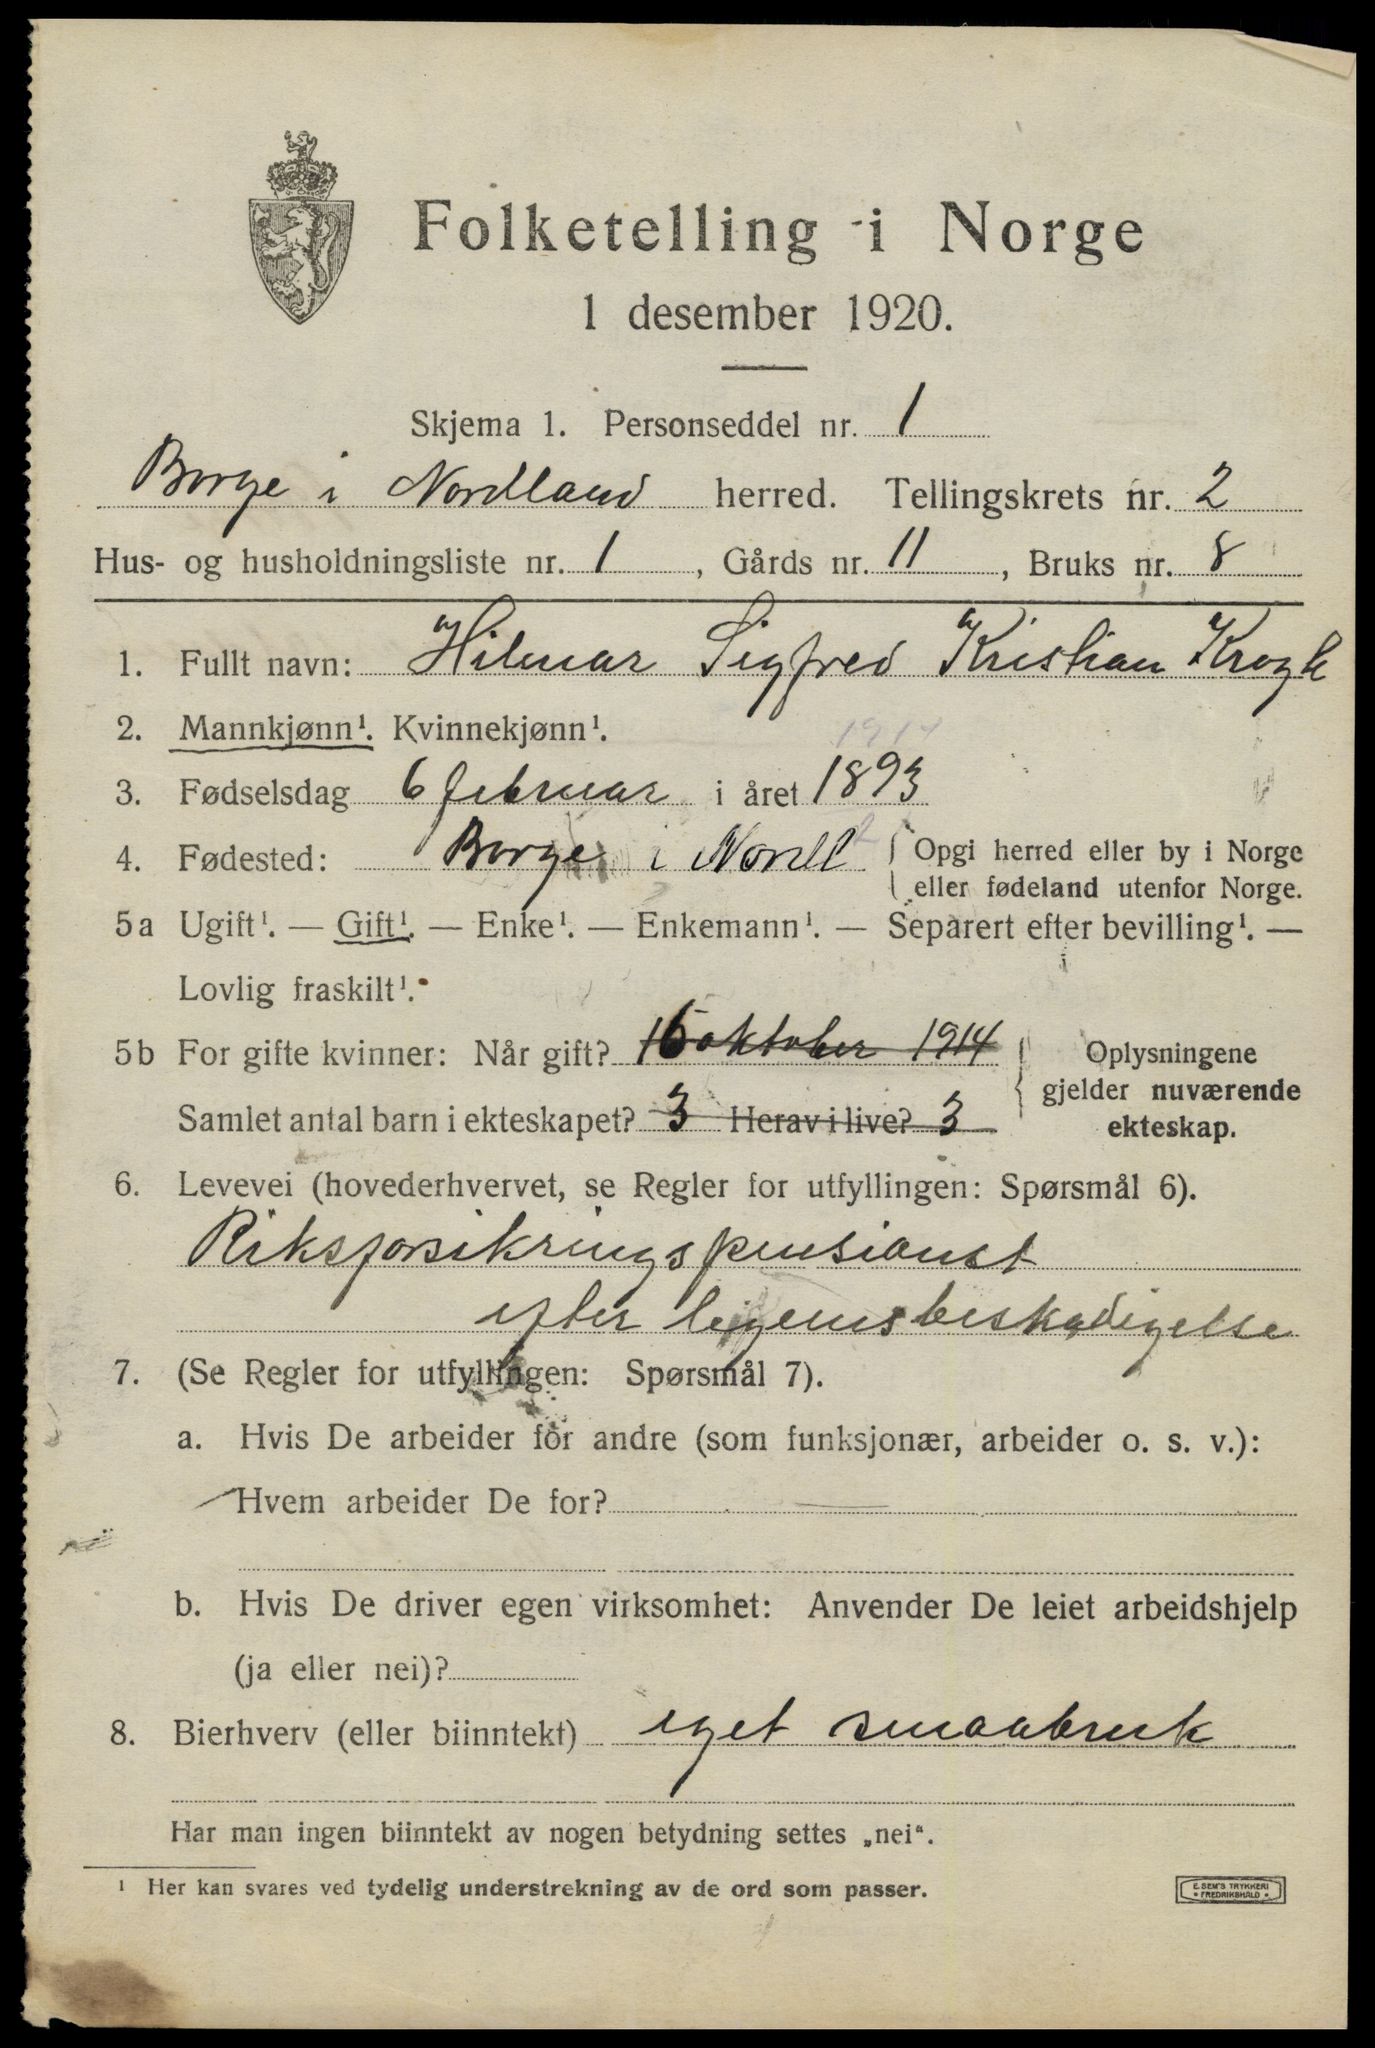 Folketelling i Norge
1 desember 1920.
Skjema 1. Personseddel nr. 1
Borge i Nordland herred. Tellingskrets nr. 2
Hus- og husholdningsliste nr. 1, Gårds nr. 11, Bruks nr. 8
1. Fullt navn: Hilmar Sigfred Kristian Krogh
2. Mannkjønn¹. Kvinnekjønn¹.
3. Fødselsdag 6 februar i året 1893
4. Fødested: Borge i Nordl Opgi herred eller by i Norge
eller fødeland utenfor Norge.
5a Ugift¹. — Gift¹. — Enke¹. — Enkemann¹. — Separert efter bevilling¹. —
Lovlig fraskilt¹.
5b For gifte kvinner: Når gift? 16 oktober 1914 Oplysningene
gjelder nuværende
Samlet antal barn i ekteskapet? 3 Herav i live? 3 ekteskap.
6. Levevei (hovederhvervet, se Regler for utfyllingen: Spørsmål 6).
Riksforsikringspensionist
efter legemsbeskadigelse
7. (Se Regler for utfyllingen: Spørsmål 7).
a. Hvis De arbeider for andre (som funksjonær, arbeider o. s. v.):
Hvem arbeider De for?
b. Hvis De driver egen virksomhet: Anvender De leiet arbeidshjelp
(ja eller nei)?
8. Bierhverv (eller biinntekt) eget smaabruk
Har man ingen biinntekt av nogen betydning settes „nei“.
¹ Her kan svares ved tydelig understrekning av de ord som passer.
E. SEM'S TRYKKERI
FREDRIKSHALD